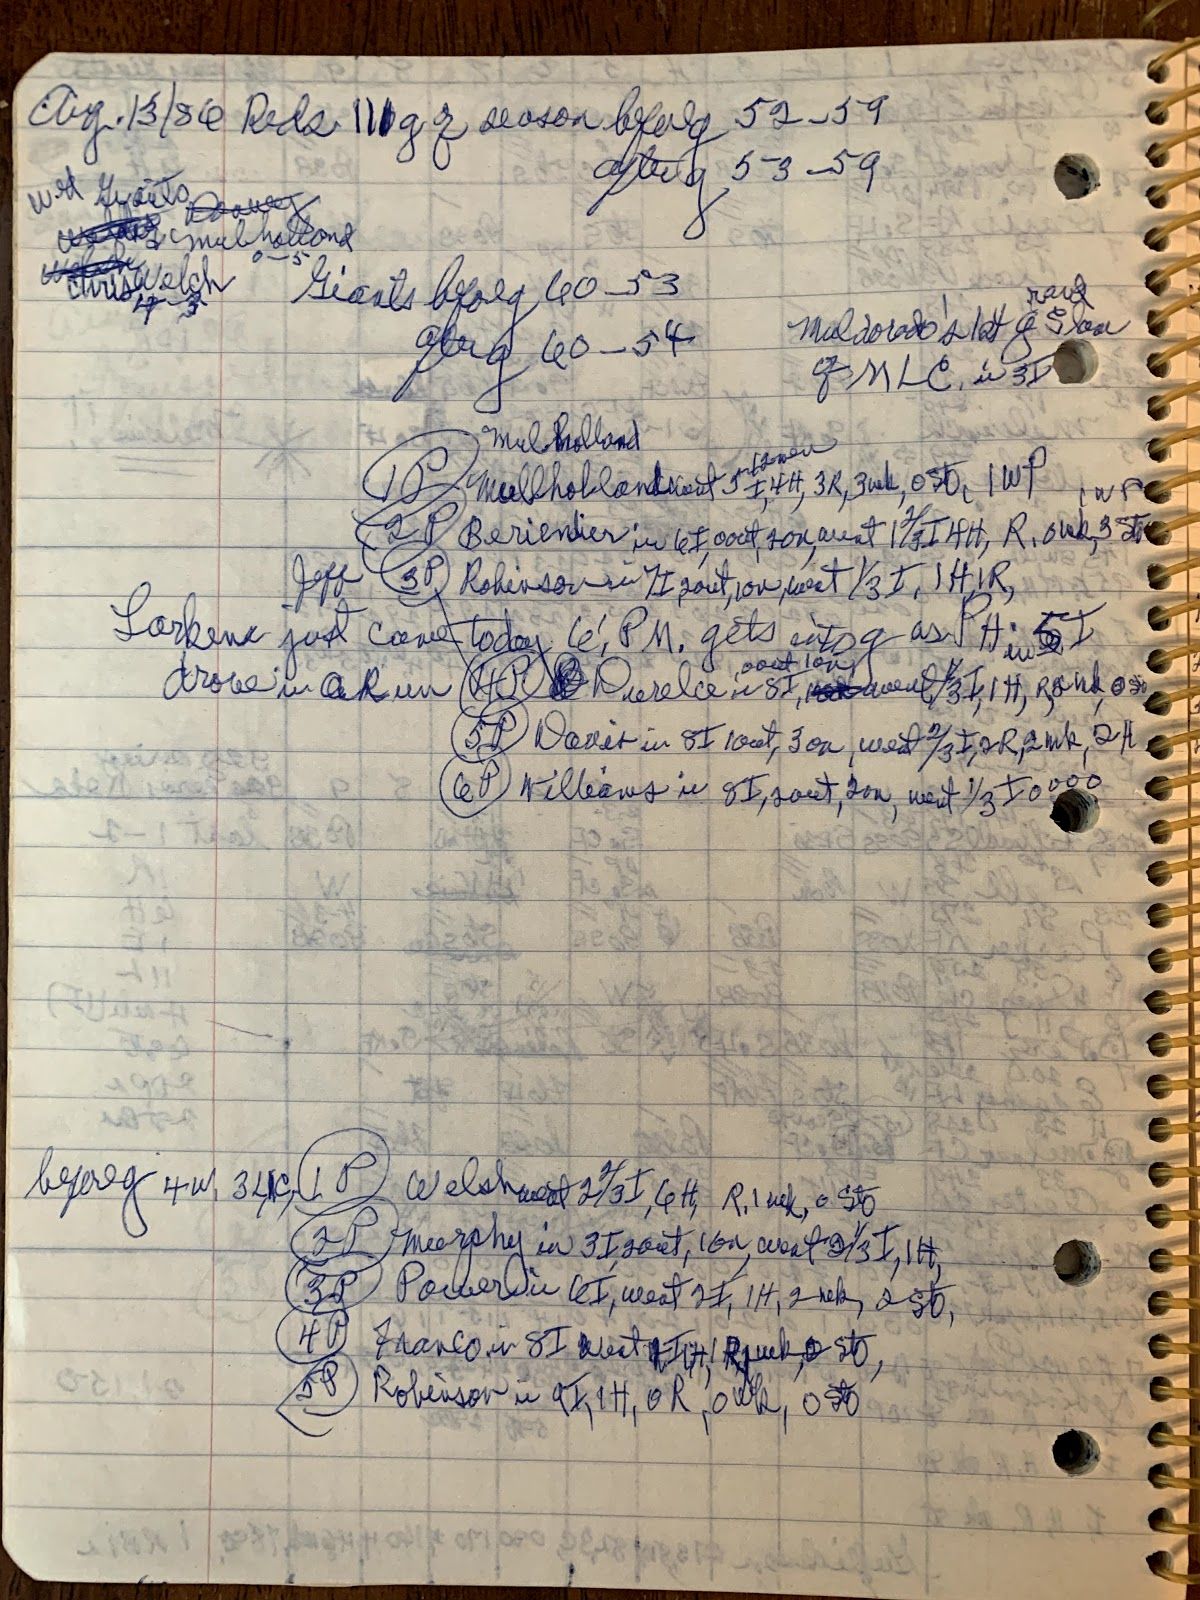 Aug. 13/86 Reds 111g of season beforeg 52-59
afterg 53-59
wed Giants
Mulholland
0-5
Chris Welch
4-3
Giants beforeg 60-53
afterg 60-54
Maldorado's 1st grand Slam
of MLC. in 3I
Mulholland
1P Mulholland went 5I, 4H, 3R, 3wk, 0 SO, 1 WP
2P Berienlier in 6I, 0out, 2on, went 1 2/3 I 4H, R, 0wk, 3 SO 1 WP
Jeff 3P Robinson in 7I, 2out, 1on, went 1/3 I, 1H, 1R,
Larkenx just came today 6', P.M. gets into g as PH in 5I
drove in a Run 4P in 8I, 0out 1on, went 1/3 I, 1H, R, 0wk, 0 SO
5P Davis in 8I 1out, 3on, went 2/3 I, 2R, 2wk, 2H
6P Williams in 8I, 2out, 2on, went 1/3 I 0000
beforeg 4W. 3L, 1P Welsh went 2 2/3 I, 6H, R. 1wk, 0 SO
2P Murphy in 3I, 2out, 1on, went 2 1/3 I, 1H,
3P Power in 6I, went 2I, 1H, 2wk, 2 SO,
4P Franco in 8I went 1I 1H, SO,
5P Robinson in 9I, 1H, 0R, 0wk, 0 SO